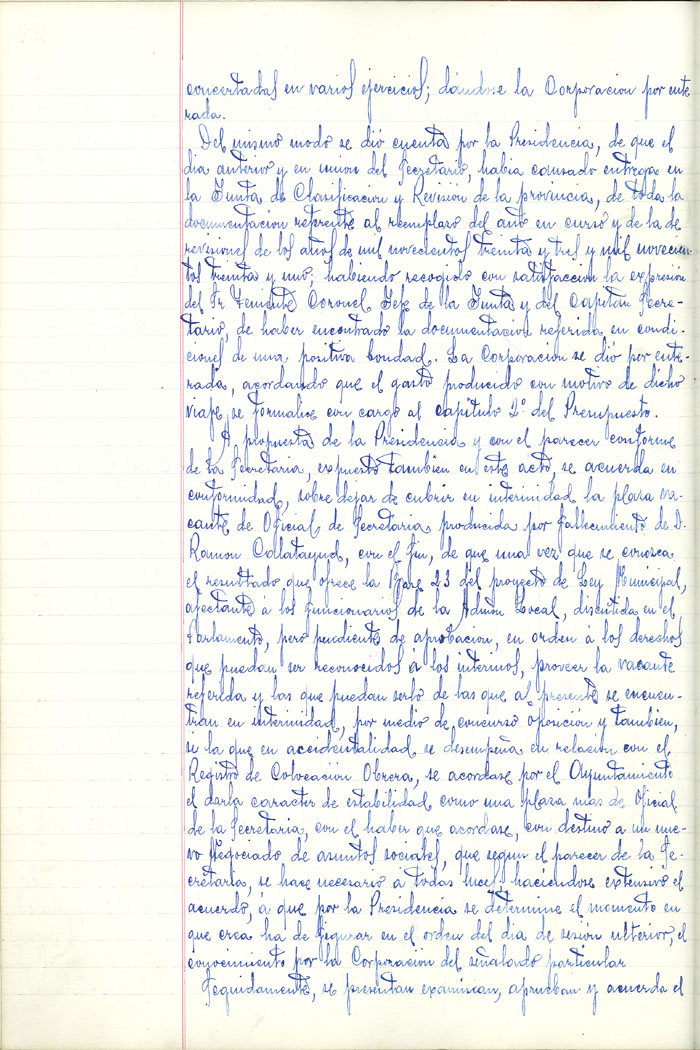 concertadas en varios ejercicios; dándose la Corporacion por ente-
rada.
Del mismo modo se dió cuenta por la Presidencia, de que el
dia anterior y en union del Secretario, habia causado entrega en
la Junta de Clasificacion y Revisión de la provincia, de toda la
documentacion referente al reemplazo del año en curso y de la de
revisiones de los años de mil novecientos treinta y tres y mil novecien-
tos treinta y uno; habiendo recogido con satisfaccion la expresion
del Sr Teniente Coronel Jefe de la Junta y del Capitan Secre-
tario, de haber encontrado la documentacion referida en condi-
ciones de una positiva bondad. La Corporacion se dió por ente-
rada, acordando que el gasto producido con motivo de dicho
viaje, se formalice con cargo al capitulo 2º del Presupuesto.
A propuesta de la Presidencia y con el parecer conforme
de la Secretaria, expuesto tambien en este acto, se acuerda en
conformidad, sobre dejar de cubrir en interinidad la plaza va-
cante de Oficial de Secretaria producida por fallecimiento de D.
Ramon Calatayud, con el fin, de que una vez que se conozca
el resultado que ofrece la Base 23 del proyecto de Ley Municipal,
afectante á los funcionarios de la Admon Local, discutida en el
Parlamento, pero pendiente de aprobacion, en orden á los derechos
que puedan ser reconocidos á los interinos, proveer la vacante
referida y las que puedan serlo de las que al presente se encuen-
tran en interinidad, por medio de concurso oposición y tambien,
si la que en accidentalidad se desempeña en relacion con el
Registro de Colocacion Obrera, se acordase por el Ayuntamiento
el darla caracter de estabilidad como una plaza mas de Oficial
de la Secretaria, con el haber que acordase, con destino a un nue-
vo Negociado de asuntos sociales, que segun el parecer de la Se-
cretaria, se hace necesario a todas luces; haciendose extensivo el
acuerdo, á que por la Presidencia se determine el momento en
que crea ha de figurar en el orden del dia de sesion ulterior, el
conocimiento por la Corporacion del señalado particular
Seguidamente, se presentan examinan, aprueban y acuerda el